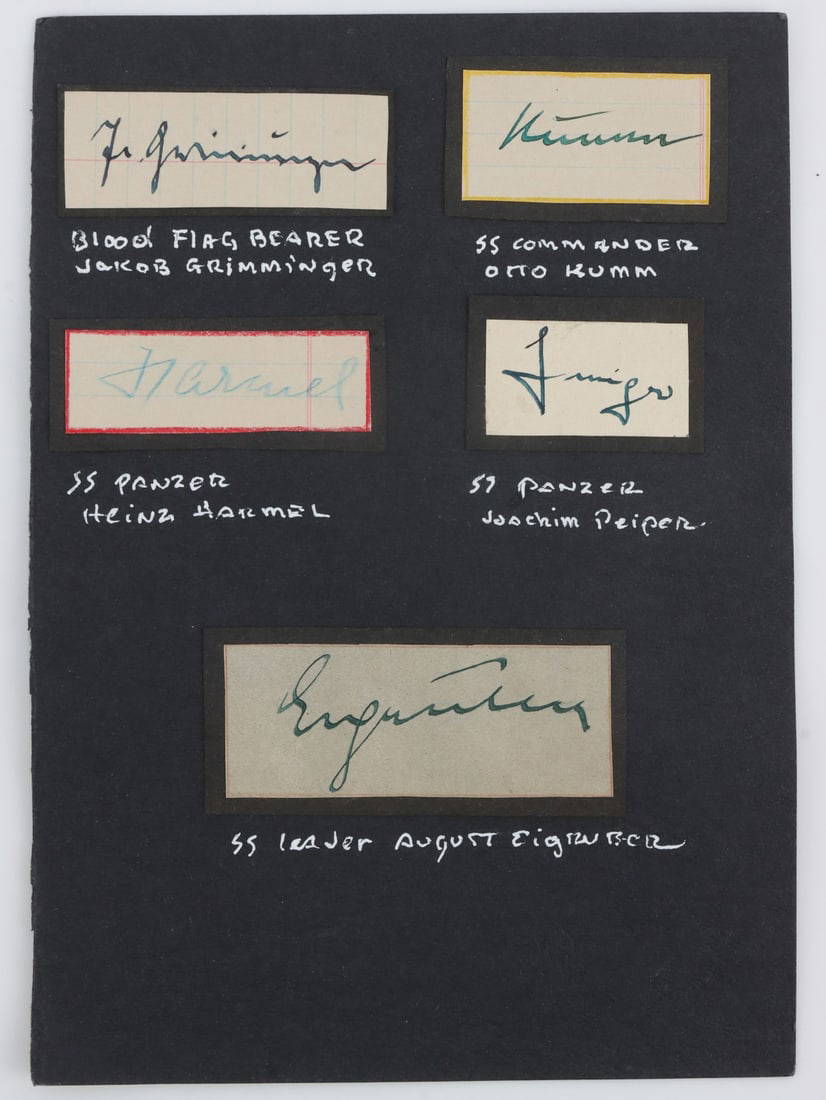 Jr. Grimminger
Kumm
Blood Flag Bearer
Jakob Grimminger
SS Commander
Otto Kumm
Harmel
SS Panzer
Heinz Harmel
SS Panzer
Joachim Peiper.
Eigruber
SS Leader August Eigruber